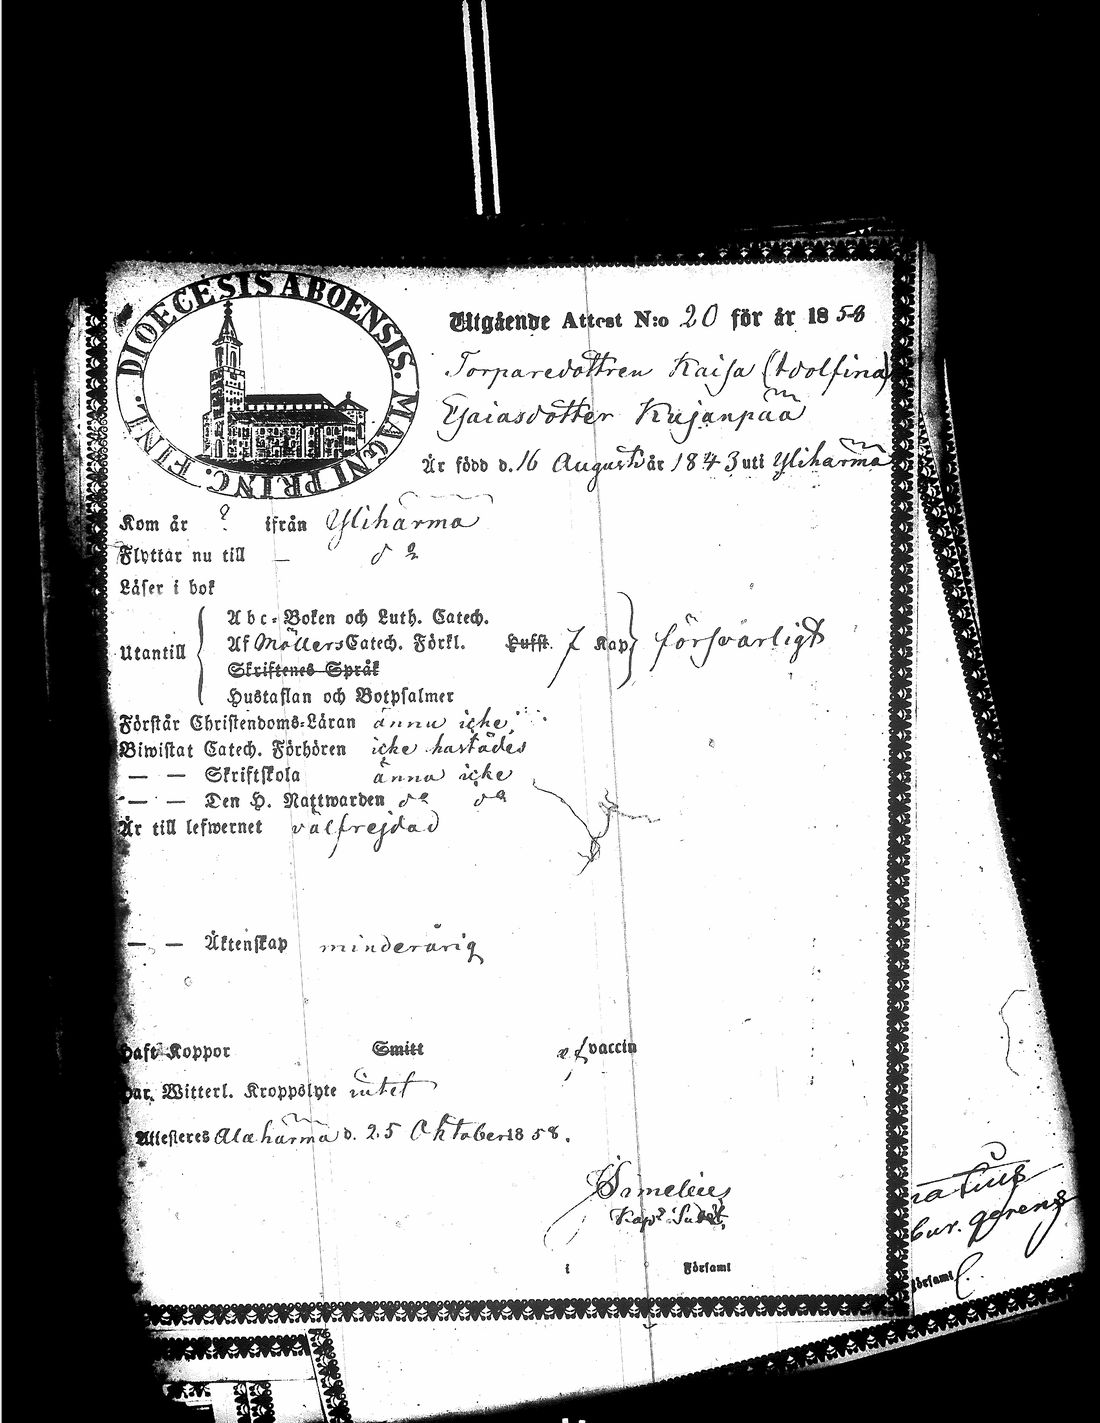 DIOECESIS ABOENSIS. MAGNI PRINC. FINL.
Utgående Attest N:o 20 för år 1858
Torparedottren Kaisa (Adolfina)
Esaiasdotter Kujanpää
Är född d. 16 Augusti år 1843 uti Ylihärmä
Kom år ? ifrån Ylihärmä
Flyttar nu till — do
Läser i bok
Abc-Boken och Luth. Catech.
Utantill Af Möllers Catech. Förkl. Lufft. 7 Kap försvarligt
Skriftenes Språk
Hustaflan och Botpsalmer
Förstår Christendoms-Läran ännu icke
Biwistat Catech. Förhören icke hartädes
— — Skriftskola ännu icke
— — Den H. Nattwarden do do
Är till lefwernet välfrejdad
— — Äktenskap minderårig
Haft Koppor Smitt af vaccin
Har Witterl. Kroppslyte intet
Attesteras Alahärmä d. 25 Oktober 1858.
Kapl
i Församl
bur. gerens
Församl